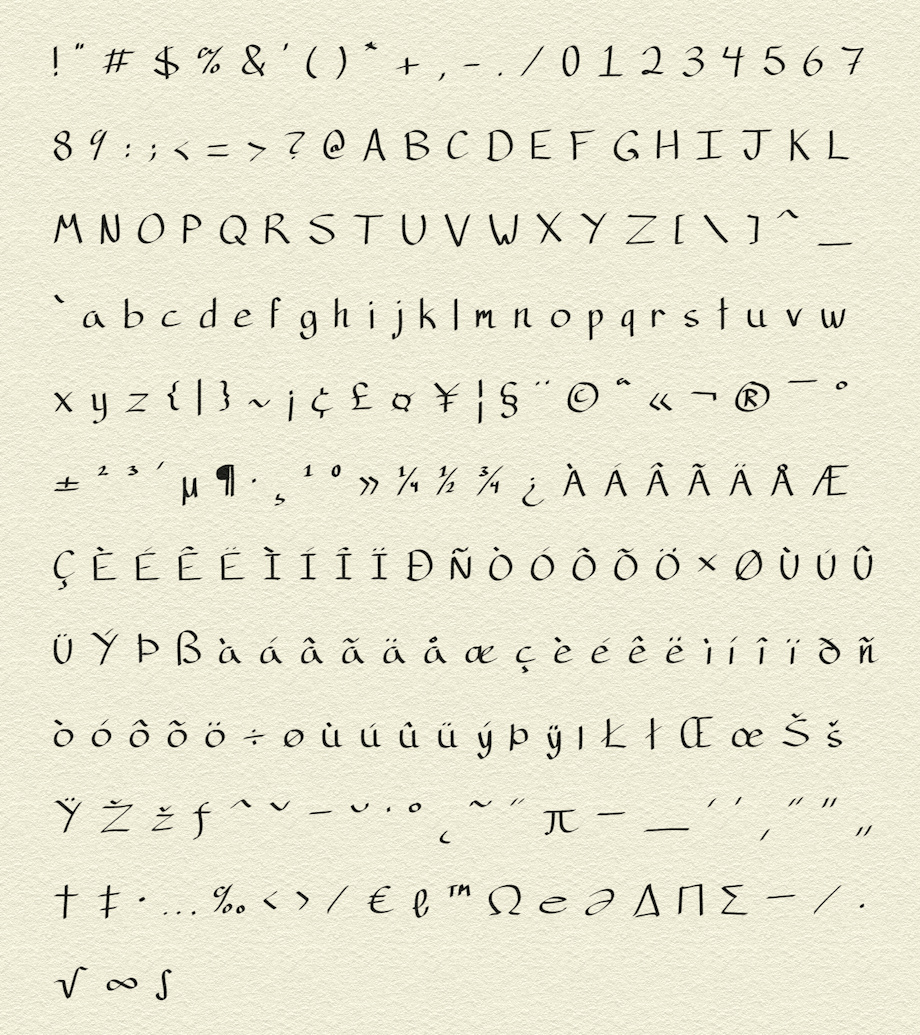 ! " # $ % & ' ( ) * + , - . / 0 1 2 3 4 5 6 7
8 9 : ; < = > ? @ A B C D E F G H I J K L
M N O P Q R S T U V W X Y Z [ \ ] ^ _
` a b c d e f g h i j k l m n o p q r s t u v w
x y z { | } ~ ¡ ¢ £ ¤ ¥ ¦ § ¨ © ª « ¬ ® ¯ °
± ² ³ ´ µ ¶ · ¸ ¹ º » ¼ ½ ¾ ¿ À Á Â Ã Ä Å Æ
Ç È É Ê Ë Ì Í Î Ï Ð Ñ Ò Ó Ô Õ Ö × Ø Ù Ú Û
Ü Ý Þ ß à á â ã ä å æ ç è é ê ë ì í î ï ð ñ
ò ó ô õ ö ÷ ø ù ú û ü ý þ ÿ ı Ł ł Œ œ Š š
Ÿ Ž ž ƒ ˆ ˇ ˉ ˘ ˙ ˚ ˛ ˜ ˝ π – — ‘ ’ ‚ “ ” „
† ‡ • … ‰ ‹ › ⁄ € ℓ ™ Ω ℮ ∂ ∆ ∏ ∑ − ∕ ∙
√ ∞ ∫